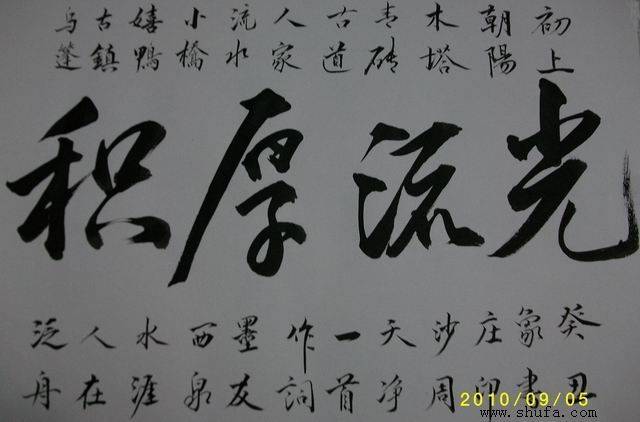 乌蓬
古鎮
嬉鴨
小橋
流水
人家
古道
青砖
木塔
朝陽
初上
积厚流光
泛舟
人在
水涯
西泉
墨友
作詞
一首
天净
沙周
庄印
象書
癸丑
2010/09/05
www.shufa.com